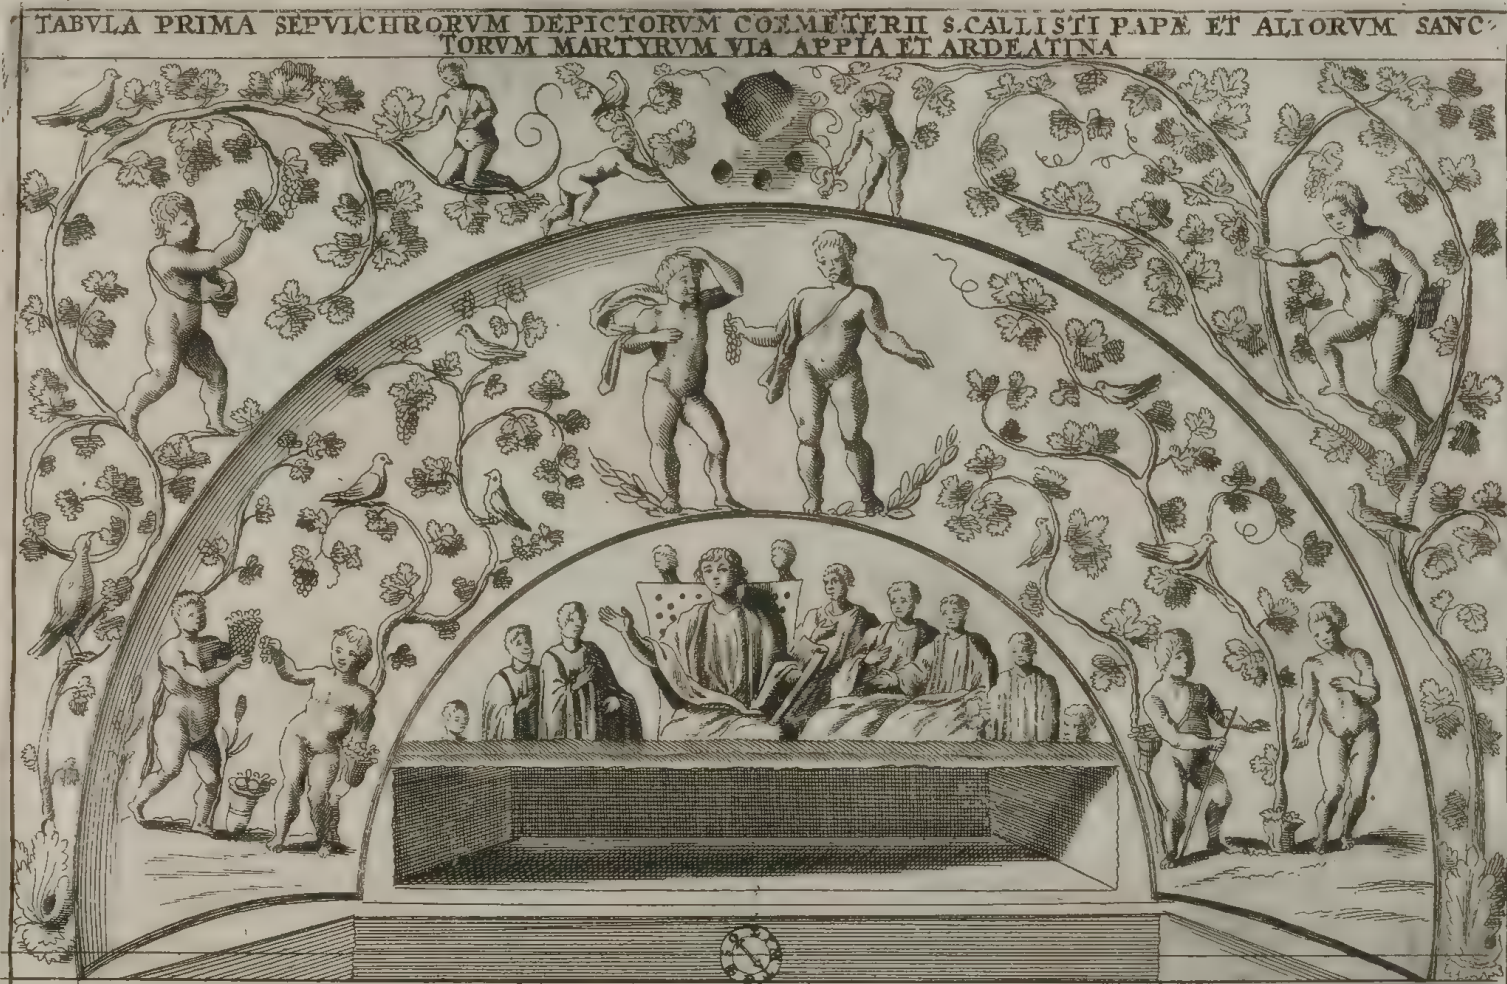 TABVLA PRIMA SEPVLCHRORVM DEPICTORVM COEMETERII S. CALLISTI PAPÆ ET ALIORVM SANC-
TORVM MARTYRVM VIA APPIA ET ARDEATINA